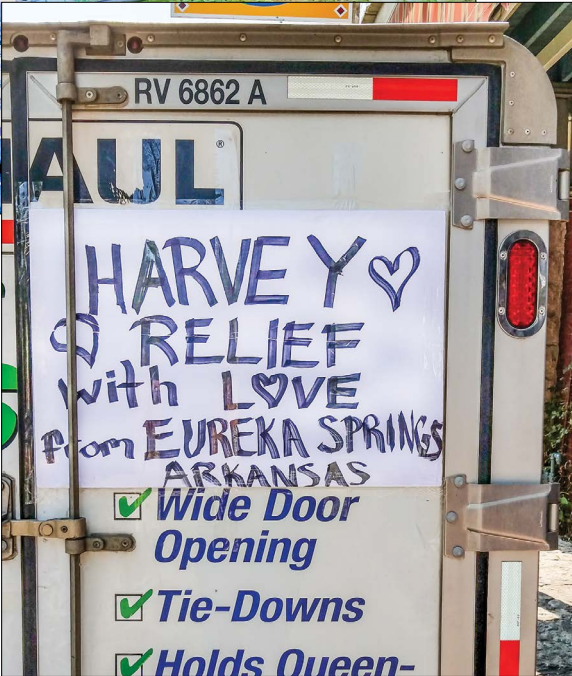 RV 6862 A
AUL®
HARVEY ♡
♡ RELIEF
with L♡VE
from EUREKA SPRINGS
ARKANSAS
Wide Door
Opening
Tie-Downs
Holds Queen-